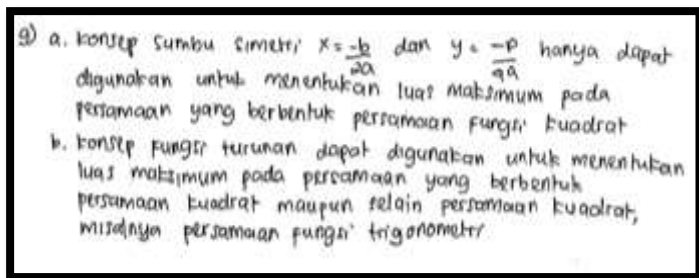 9) a. konsep sumbu simetri x = -b/2a dan y = -D/4a hanya dapat
digunakan untuk menentukan luas maksimum pada
persamaan yang berbentuk persamaan fungsi kuadrat
b. konsep fungsi turunan dapat digunakan untuk menentukan
luas maksimum pada persamaan yang berbentuk
persamaan kuadrat maupun selain persamaan kuadrat,
misalnya persamaan fungsi trigonometri